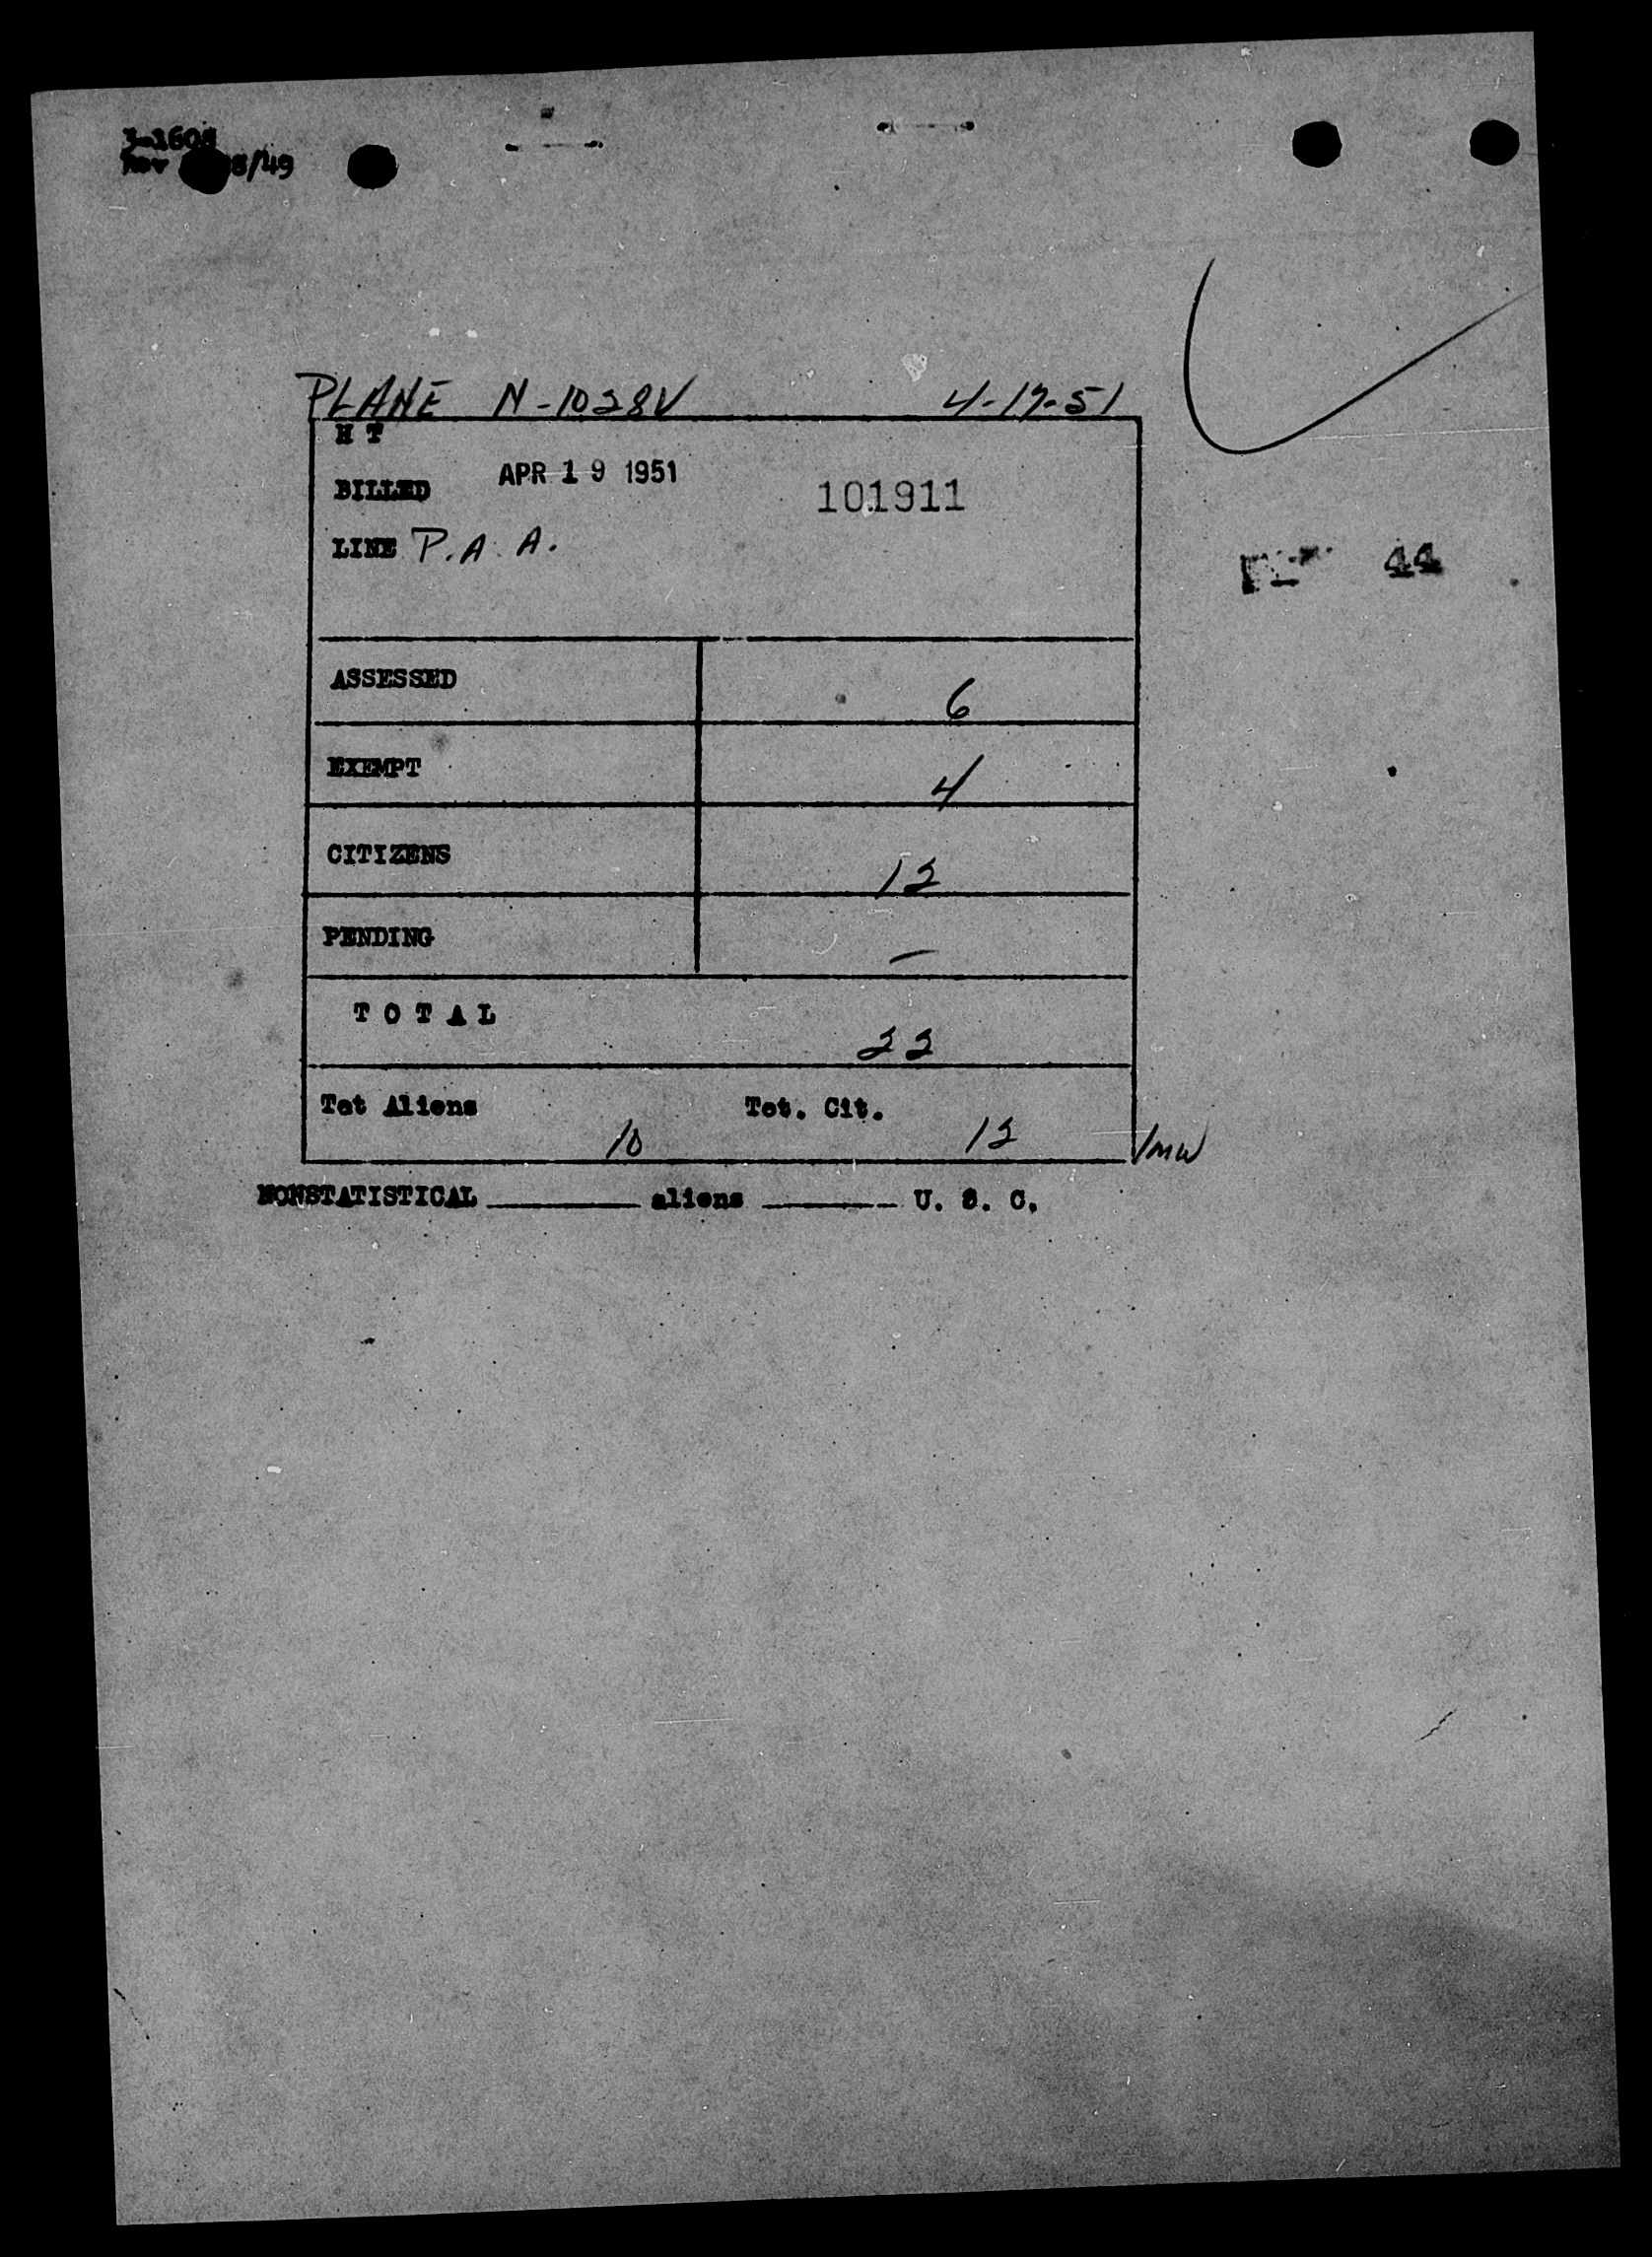 3-1608
Rev 8/49
PLANE N-1028V 4-17-51
H T
BILLED APR 19 1951 101911
LINE P.A.A.
44
ASSESSED 6
EXEMPT 4
CITIZENS 12
PENDING —
TOTAL 22
Tot Aliens 10 Tot. Cit. 12 /mw
NONSTATISTICAL ________ aliens ________ U. S. C.